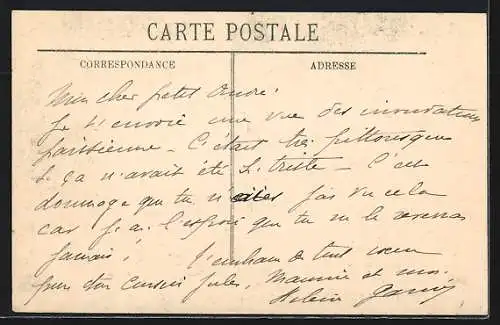 CARTE POSTALE
CORRESPONDANCE
ADRESSE
Mon cher petit André!
Je t'envoie une vue des inondations
parisienne - C'était très pittoresque
si ça n'avait été si triste - C'est
dommage que tu n'aies pas vu cela
car j'ai l'espoir que tu ne le reverras
jamais! J'embrasse de tout coeur
pour ton cousin Jules, Maurice et moi
Hélène